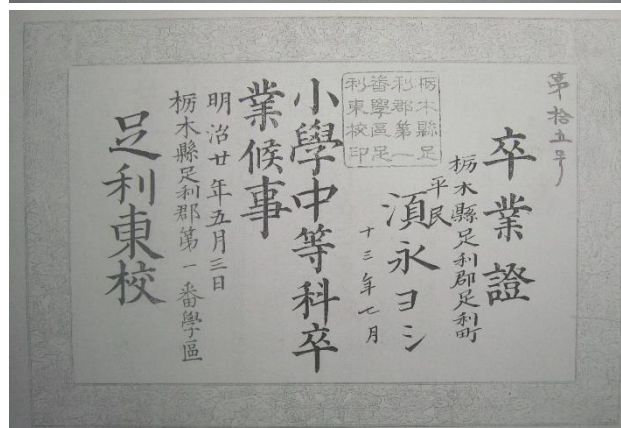 第拾五号
卒業證
栃木縣足利郡足利町
平民
須永ヨシ
十三年七月
栃木縣足
利郡第一
番學區足
利東校印
小學中等科卒
業候事
明治廿年五月三日
栃木縣足利郡第一番學區
足利東校